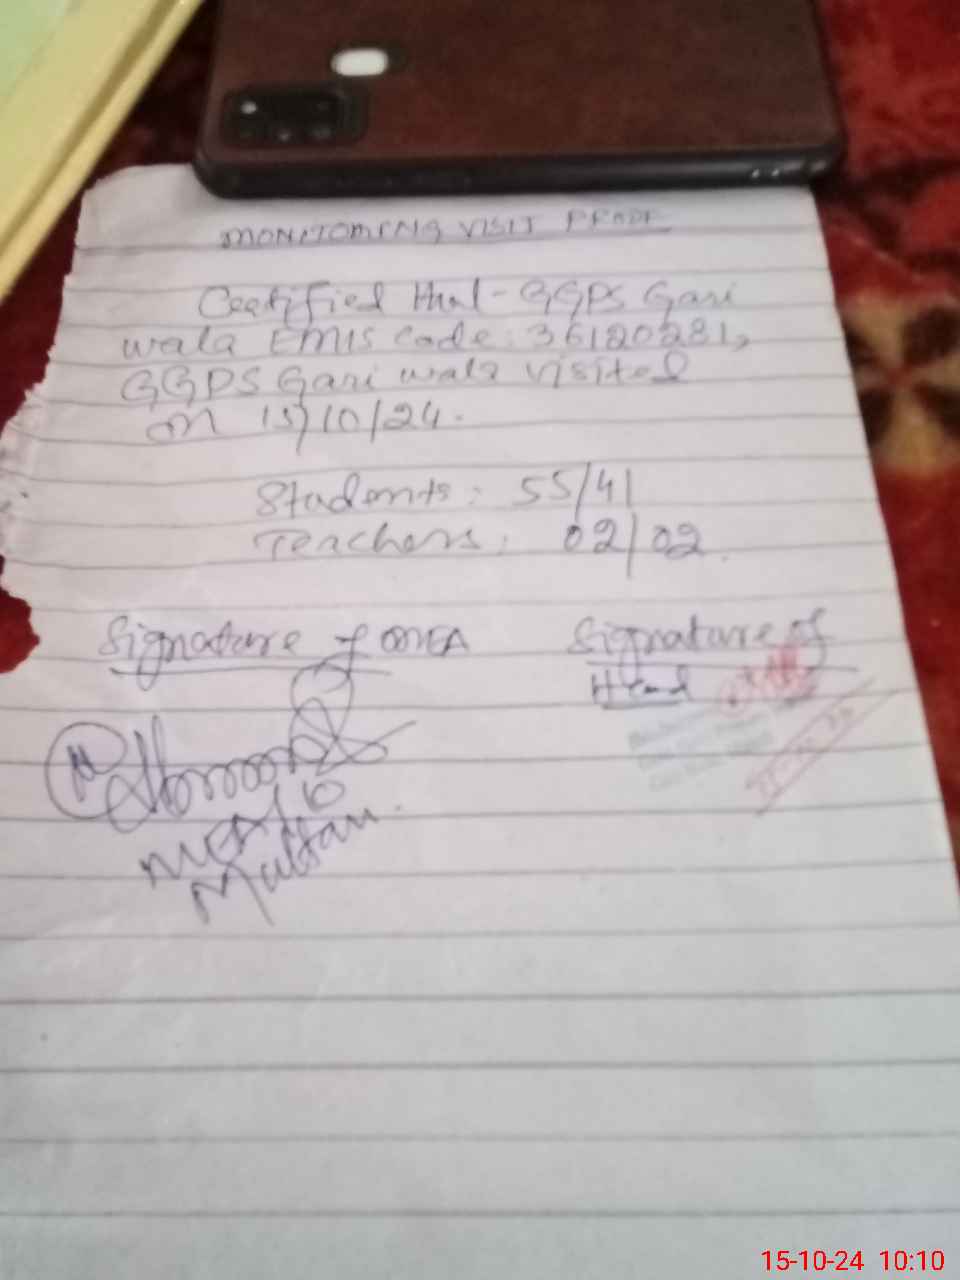 MONITORING VISIT PROOF
Certified that GGPS Gari
wala EMIS Code: 36120281,
GGPS Gari wala visited
on 15/10/24.
Students: 55/41
Teachers: 02/02.
Signature of MEA
Signature of
Head
MEA/10
Multan.
15-10-24 10:10